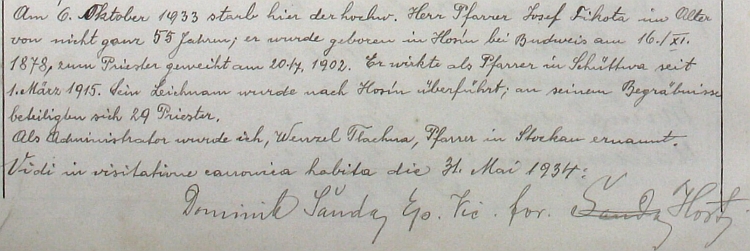 Am 6. Oktober 1933 starb hier der hochw. Herr Pfarrer Josef Fikota im Alter
von nicht ganz 55 Jahren; er wurde geboren in Hosín bei Budweis am 16./XI.
1878, zum Priester geweiht am 20./7. 1902. Er wirkte als Pfarrer in Schüttwa seit
1. März 1915. Sein Leichnam wurde nach Hosín überführt; an seinem Begräbnisse
beteiligten sich 29 Priester.
Als Administrator wurde ich, Wenzel Tlachna, Pfarrer in Stockau ernannt.
Vidi in visitatione canonica habita die 31. Mai 1934:
Dominik Šanda, Ep. Vic. for. Host